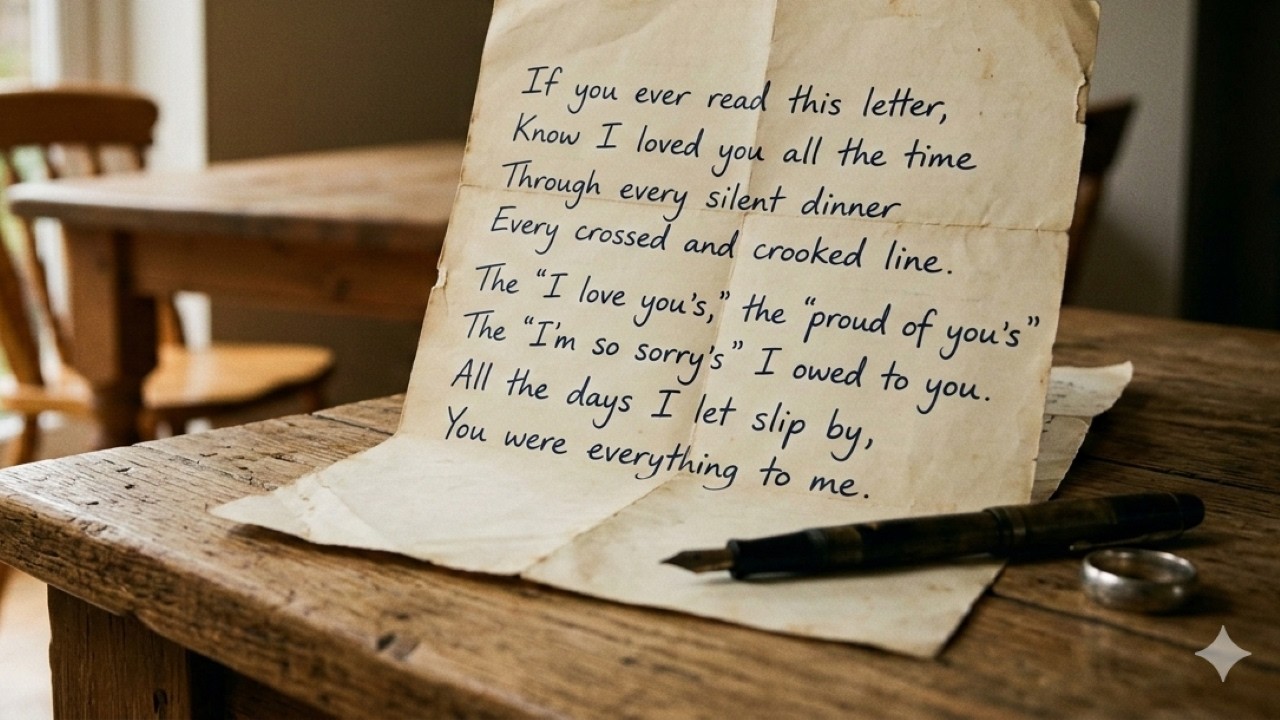 If you ever read this letter,
Know I loved you all the time
Through every silent dinner
Every crossed and crooked line.
The “I love you's,” the “proud of you's”
The “I'm so sorry's” I owed to you.
All the days I let slip by,
You were everything to me.